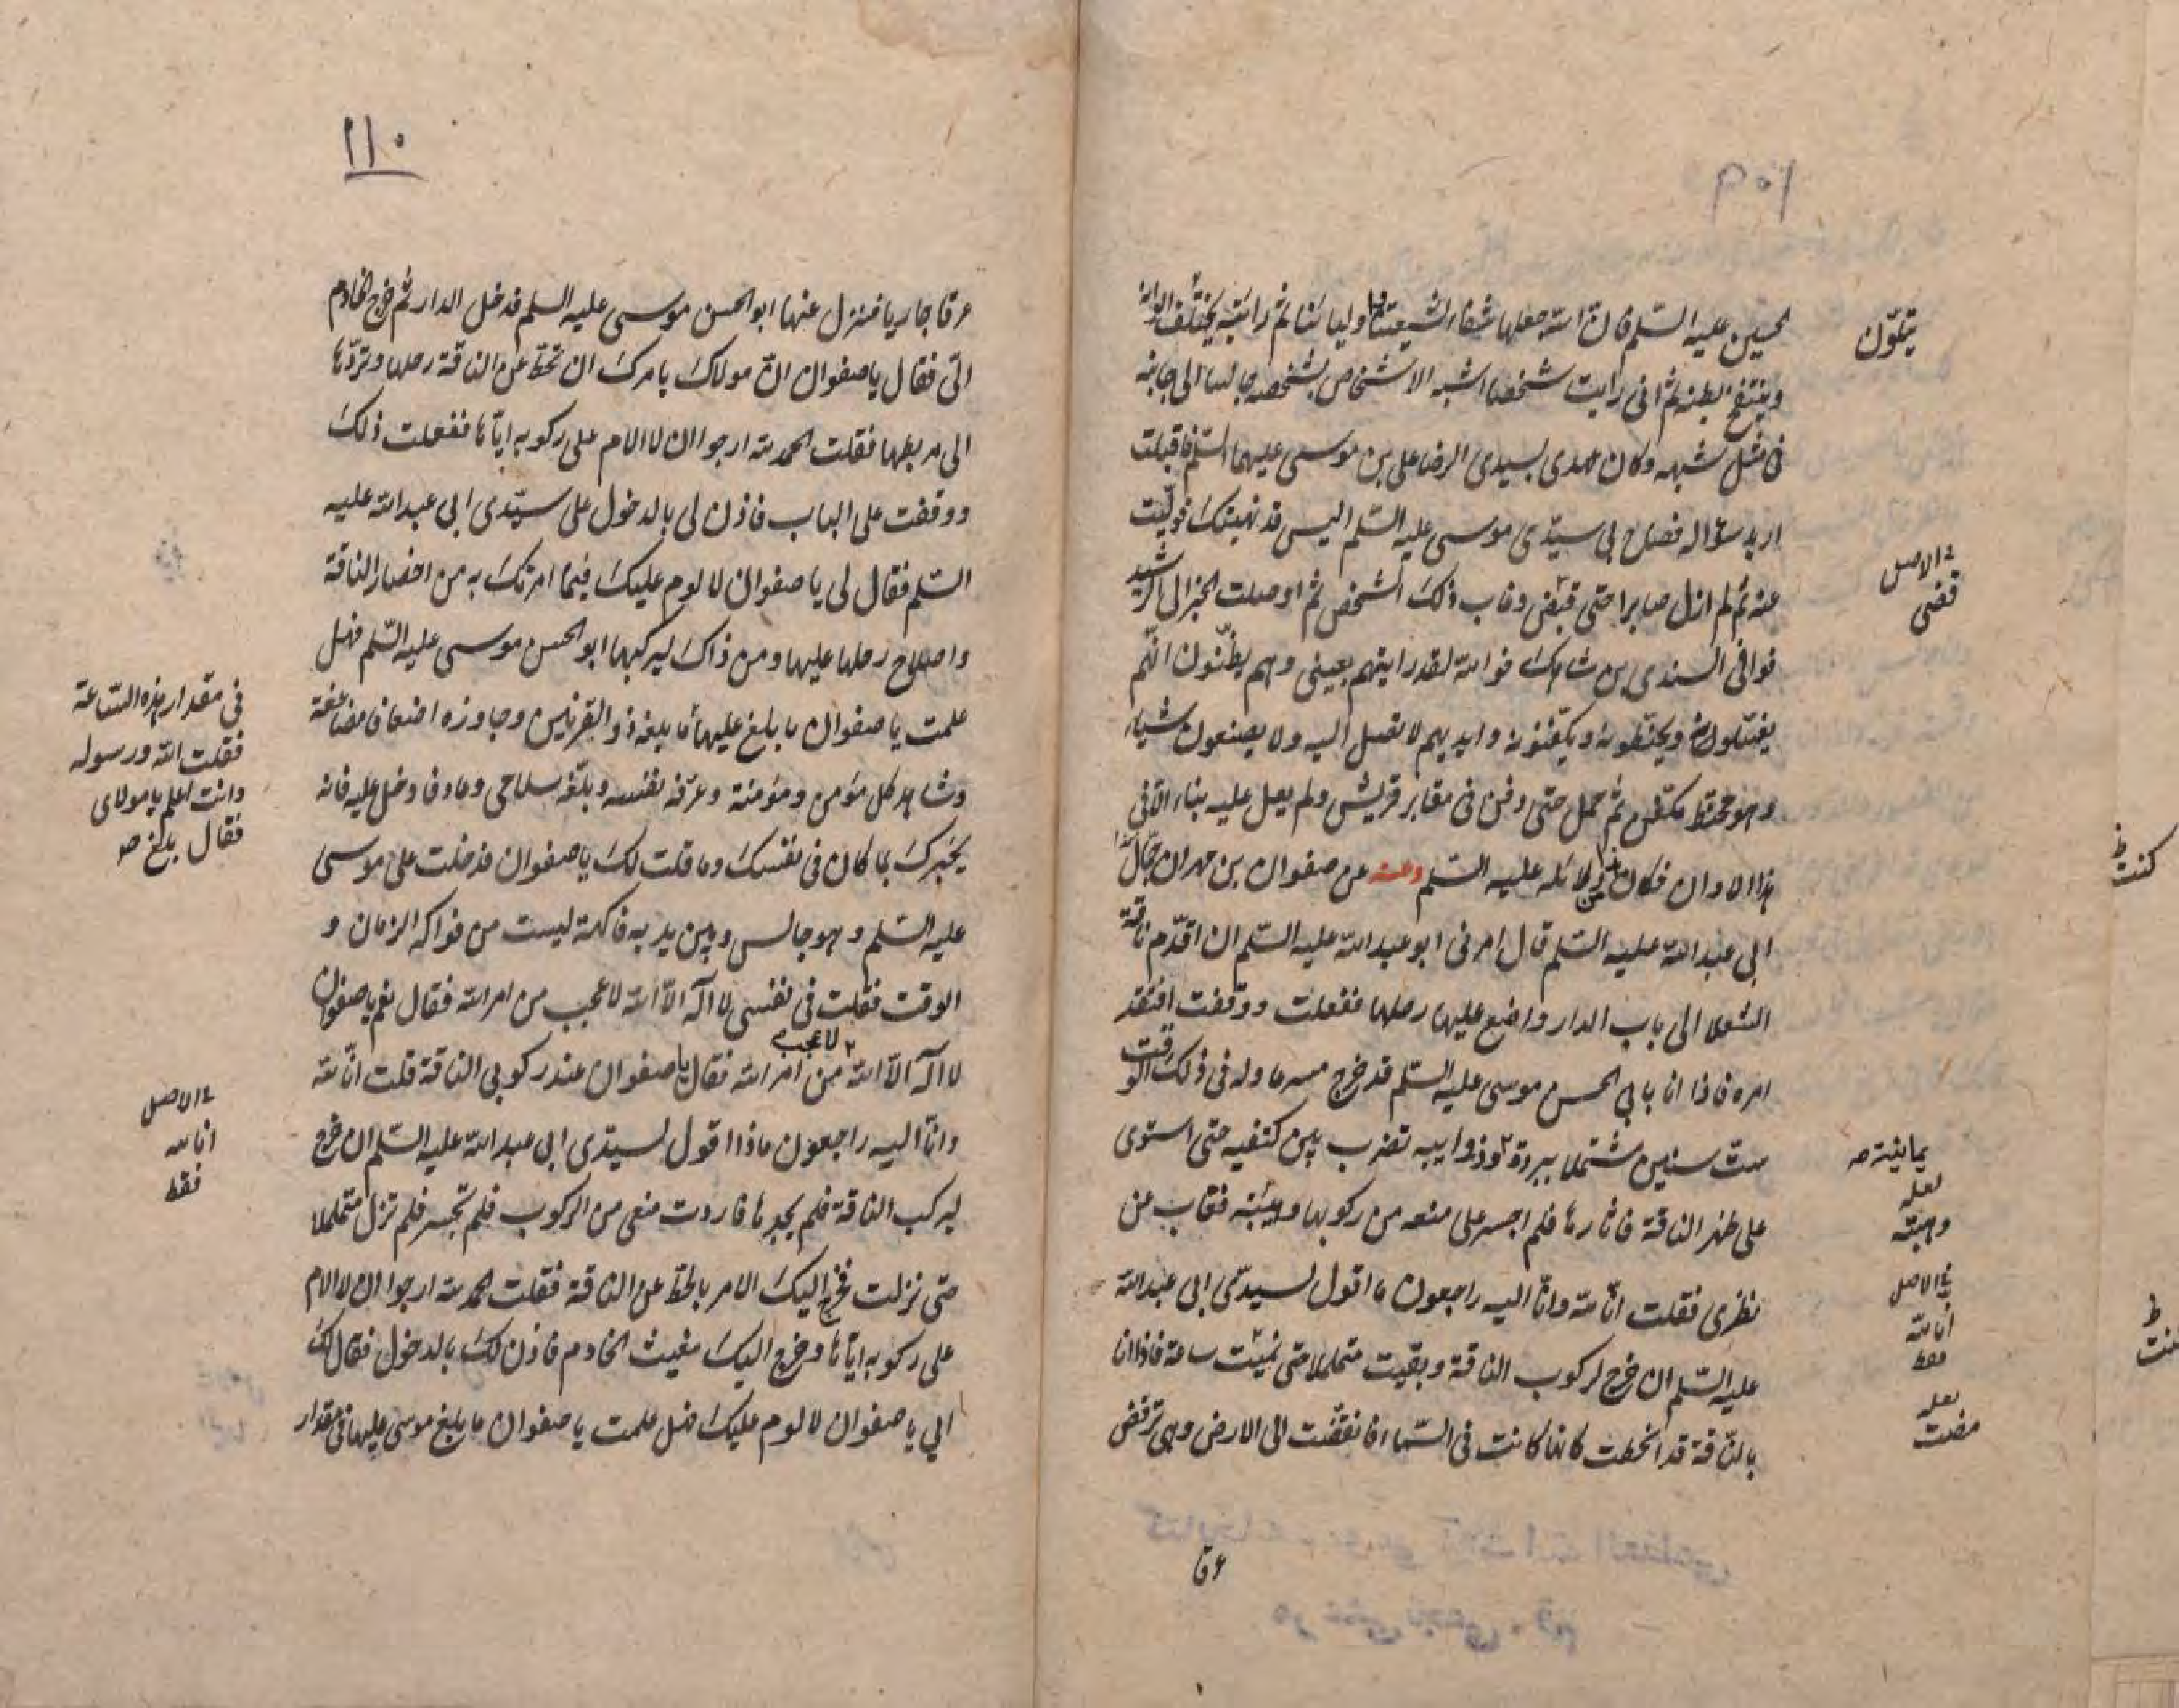 ١٠٩
الحسين عليه السّلم فان اللّه جعلها شفاء لشيعتنا واوليائنا ثم رايته يختلف الوانه
وينتفخ بطنه ثم انى رايت شخصا اشبه الاشخاص بشخصه جالسا الى جانبه
فى مثل شبهه وكان عهدى بسيدى الرضا على بن موسى عليهما السّلم فاقبلت
اريد سؤاله فصاح بى سيّدى موسى عليه السّلم اليس قد نهيتك فولّيت
عنه ثم لم ازل صابرا حتى قبض وغاب ذلك الشخص ثم اوصلت الخبر الى الرشيد
فوافى السندى بن شاهك فواللّه لقد رايتهم بعينى وهم يظنّون انّهم
يغسّلونه ويحنّطونه ويكفّنونه وايديهم لا تصل اليه ولا يصنعون شياء
وهو محنّط مكفّن ثم حمل حتى دفن فى مقابر قريش ولم يعل عليه بناء الّا فى
هذا الاوان فكان من دلائله عليه السّلم وعنه عن صفوان بن مهران جمّال
ابى عبد اللّه عليه السّلم قال امرنى ابو عبد اللّه عليه السّلم ان اقدّم ناقة
الشعلا الى باب الدار واضع عليها رحلها ففعلت ووقفت افتقد
امره فاذا انا بابى الحسن موسى عليه السّلم قد خرج مسرعا وله فى ذلك الوقت
ست سنين مشتملا ببردة وذوايبه تضرب بين كتفيه حتى استوى
على ظهر الناقة فاثارها فلم اجسر على منعه من ركوبها وهيبته فغاب عن
نظرى فقلت انّا للّه وانّا اليه راجعون ما اقول لسيدى ابى عبد اللّه
عليه السّلم ان خرج لركوب الناقة وبقيت متململا حتى ساعة فاذا انا
بالنّاقة قد انحطت كانها كانت فى السّماء فانقضّت الى الارض وهى ترفض
عرقا
يتلوّن
فى الاصل
قضى
يمانية صه
لعله
وهبته
فى الاصل
انا للّه
فقط
لعله
مضت
كنت ظ
١١٠
عرقا جاريا فنزل عنها ابو الحسن موسى عليه السلم فدخل الدار ثم خرج الخادم
الىّ فقال يا صفوان انّ مولاك يامرك ان تحطّ عن الناقة رحلها وتردّها
الى مربطها فقلت الحمد للّه ارجوا ان لا الام على ركوبه ايّاها ففعلت ذلك
ووقفت على الباب فاذن لى بالدخول على سيّدى ابى عبد اللّه عليه
السّلم فقال لى يا صفوان لا لوم عليك فيما امرتك به من احضار الناقة
واصلاح رحلها عليها ومن ذاك ليركبها ابو الحسن موسى عليه السّلم فهل
علمت يا صفوان ما بلغ عليها ما بلغه ذو القرنين وجاوزه اضعافا مضاعفة
وشاهد كل مؤمن ومؤمنة وعرّفه نفسه وبلّغه سلامى وعاد فادخل عليه فانه
يخبرك بما كان فى نفسك وما قلت لك يا صفوان فدخلت على موسى
عليه السّلم وهو جالس وبين يديه فاكهة ليست من فواكه الزمان و
الوقت فقلت فى نفسى لا اله الّا اللّه لا عجب من امر اللّه فقال نعم يا صفوان
لا اله الّا اللّه لا عجب من امر اللّه فقال يا صفوان عند ركوبى الناقة قلت انّا للّه
وانّا اليه راجعون ماذا اقول لسيّدى ابى عبد اللّه عليه السّلم ان خرج
ليركب الناقة فلم يجدها فاردت منعى من الركوب فلم تجسر فلم تزل متململا
حتى نزلت فخرج اليك الامر بالحطّ عن الناقة فقلت الحمد للّه ارجوا ان لا الام
على ركوبه ايّاها وخرج اليك مغيث الخادم فاذن لك بالدخول فقال لك
ابى يا صفوان لا لوم عليك فهل علمت يا صفوان ما بلغ موسى عليها فى مقدار
فى مقدار هذه السّاعة
فقلت اللّه ورسوله
وانت اعلم يا مولاى
فقال بلغ صه
فى الاصل
انا للّه
فقط